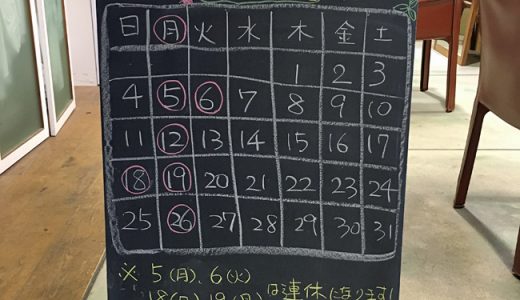 日 月 火 水 木 金 土
1 2 3
4 5 6 7 8 9 10
11 12 13 14 15 16 17
18 19 20 21 22 23 24
25 26 27 28 29 30 31
※ 5(月)、6(火)
18(日)、19(月)は連休になります!